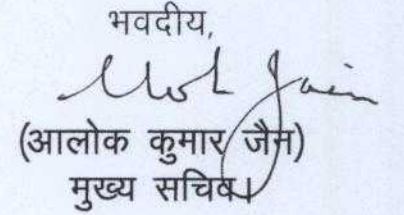 भवदीय,
Alok Jain
(आलोक कुमार जैन)
मुख्य सचिव।